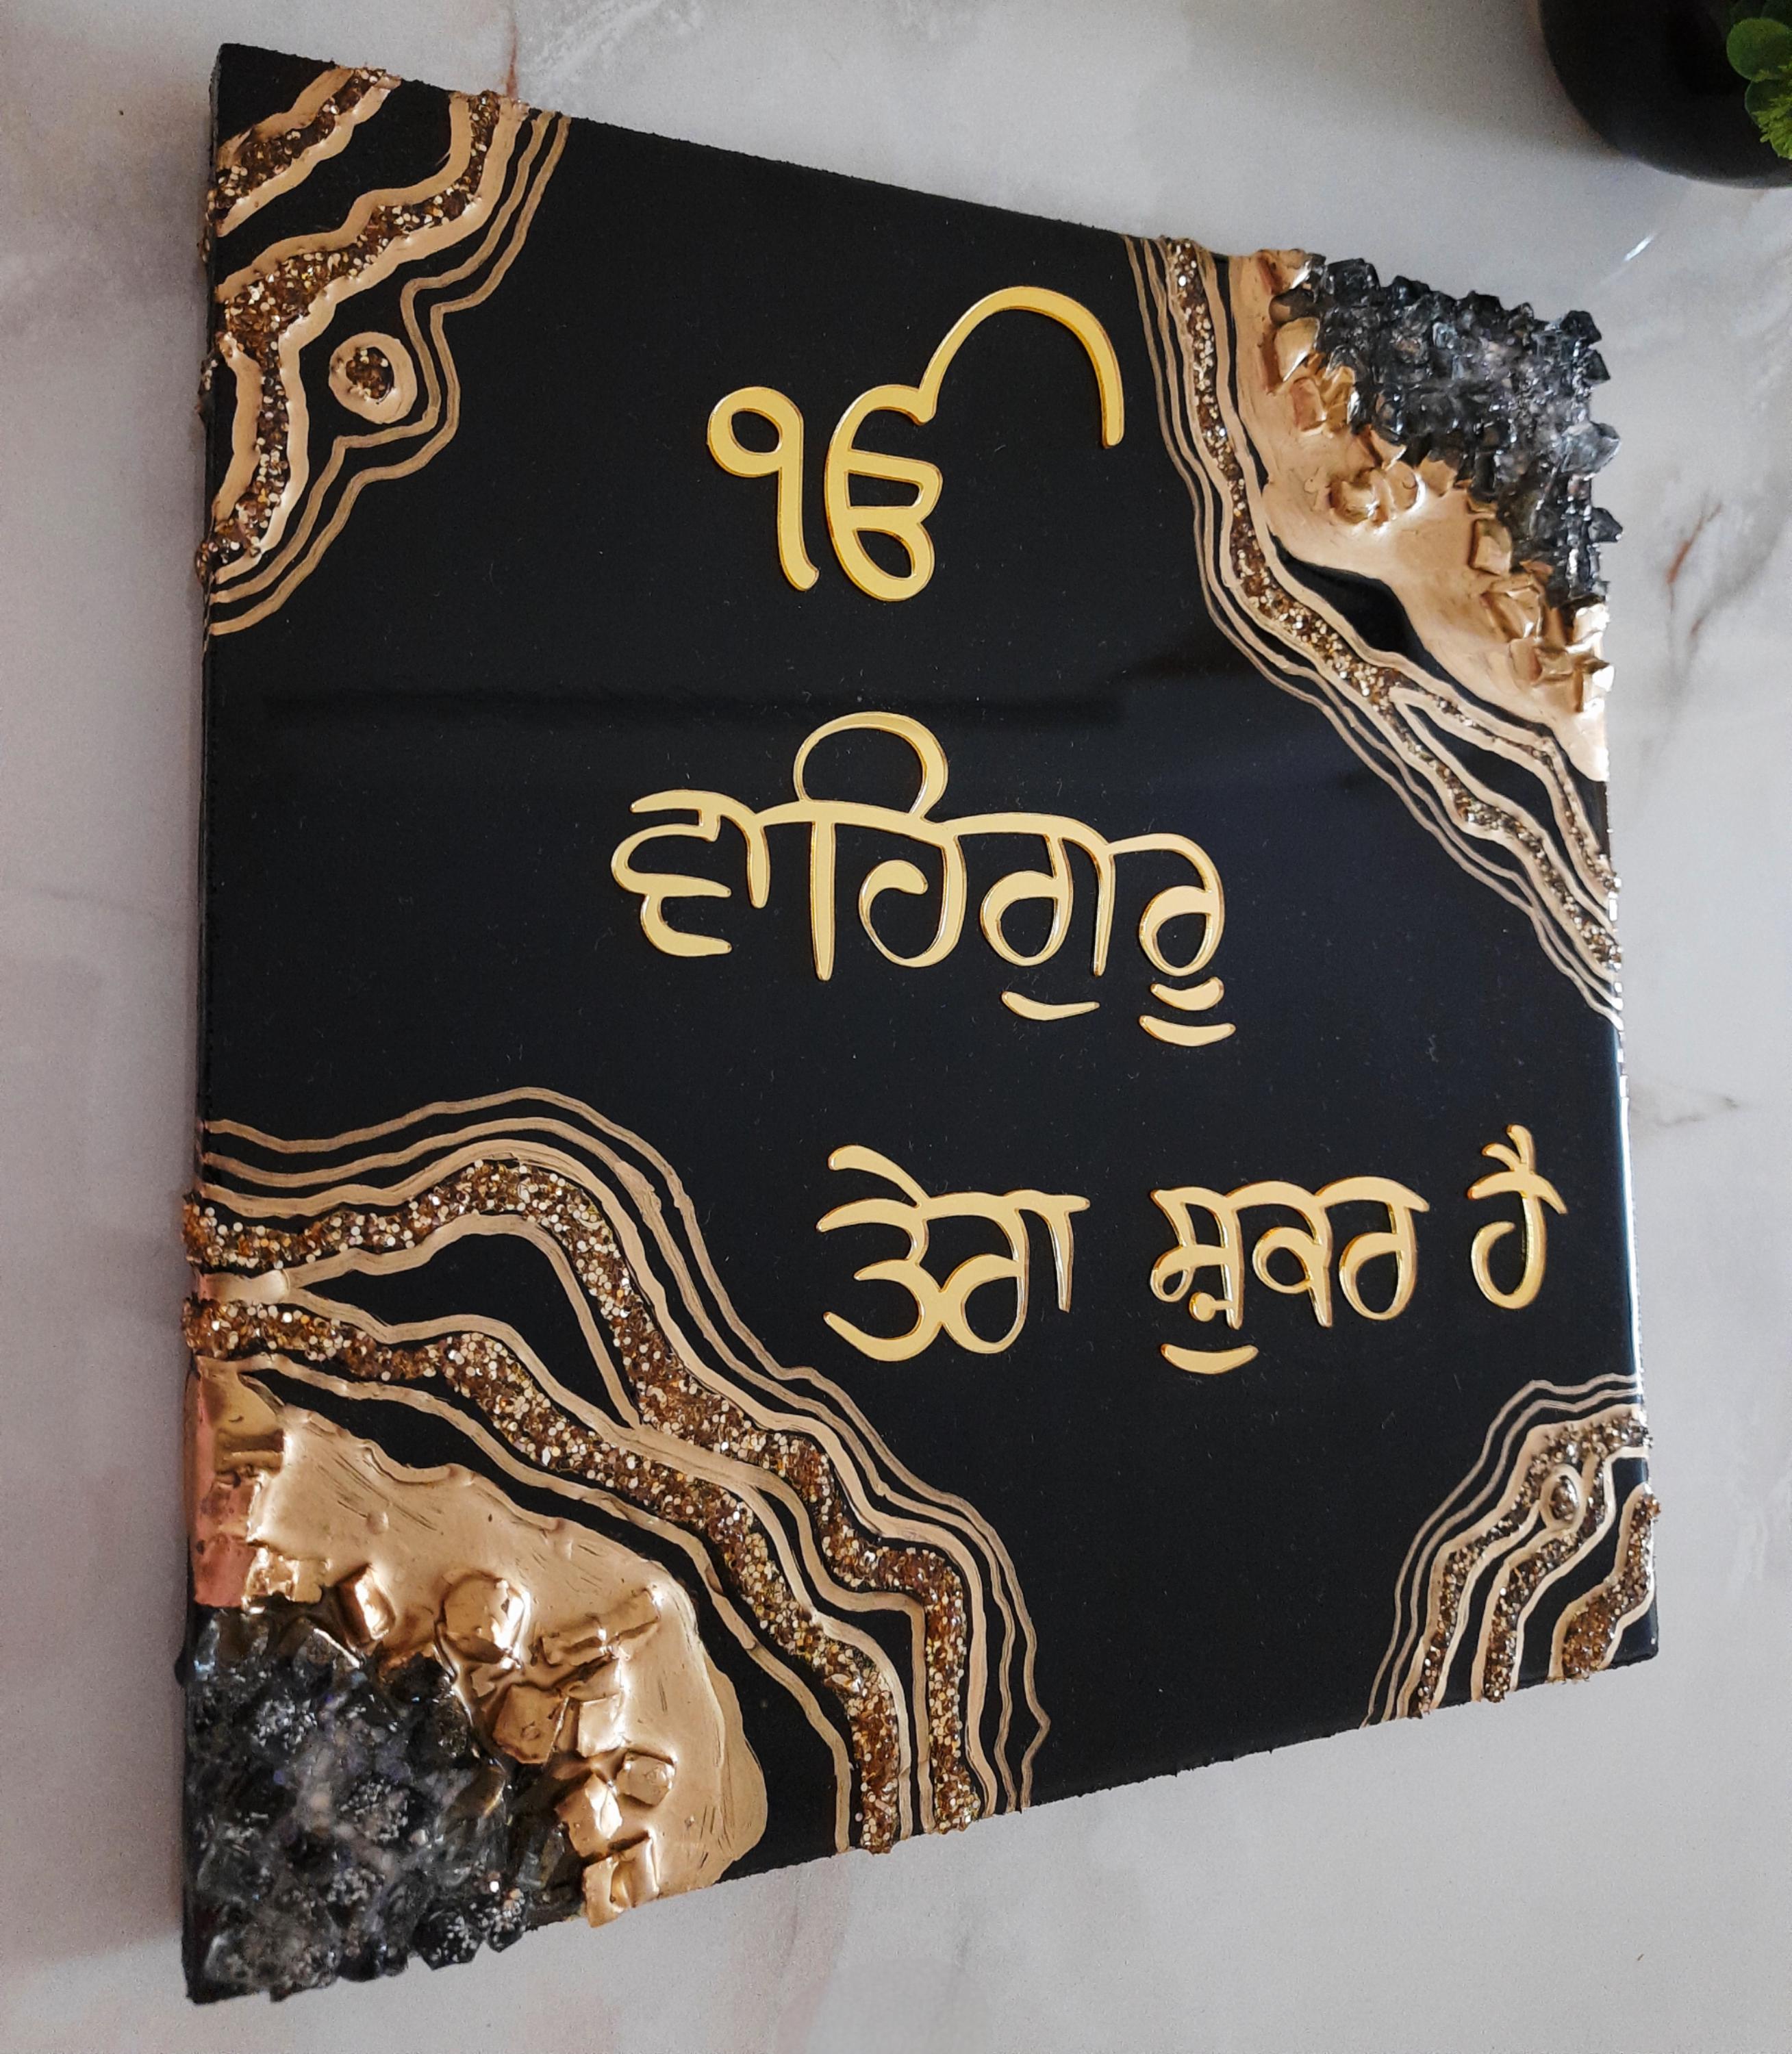 ੴ
ਵਾਹਿਗੁਰੂ
ਤੇਰਾ ਸ਼ੁਕਰ ਹੈ